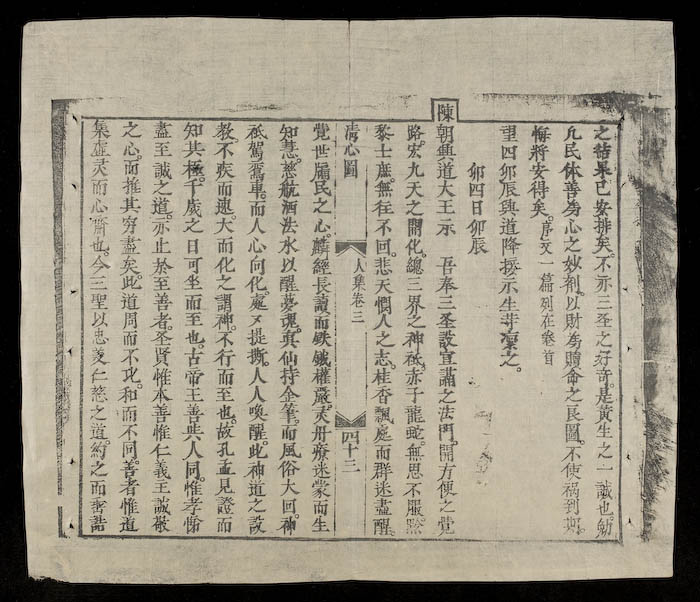 之結果已安排矣。不亦三圣之好奇。是黃生之一誠也。勉
凡民体善為心之妙剂以財為贖命之良圖。不使禍到期。
悔將安得矣。序文一篇列在卷首
望四卯辰興道降援示生等凜之。
卯四日卯辰
陳朝興道大王示 吾奉三圣設宣講之法門。開方便之覺
路。宏九天之開化。總三界之神祇。赤子龍蛇。無思不服。黔
黎士庶。無往不回。悲天憫人之志。桂香飄處而群迷盡醒。
清心圖 人集卷三 四十三
覺世牖民之心。麟經長讀而鈇鉞權嚴。灵丹療迷蒙而生
知慧。慈航洒法水以醒夢魂。真仙持金筆。而風俗大回。神
祇駕鸞車。而人心向化。處及提撕。人人喚醒。此神道之設
教不疾而速。大而化之謂神。不行而至也。故孔孟見證而
知其極。千歲之日可坐而至也。古帝王善與人同。惟孝悌
盡至誠之道。亦止於至善者。圣賢惟本善惟仁義王誠敬
之心。而推其窮盡矣。此道周而不比。和而不同。善者惟道
集虛灵而心齋也。今三聖以忠義仁慈之道。約之而害誥